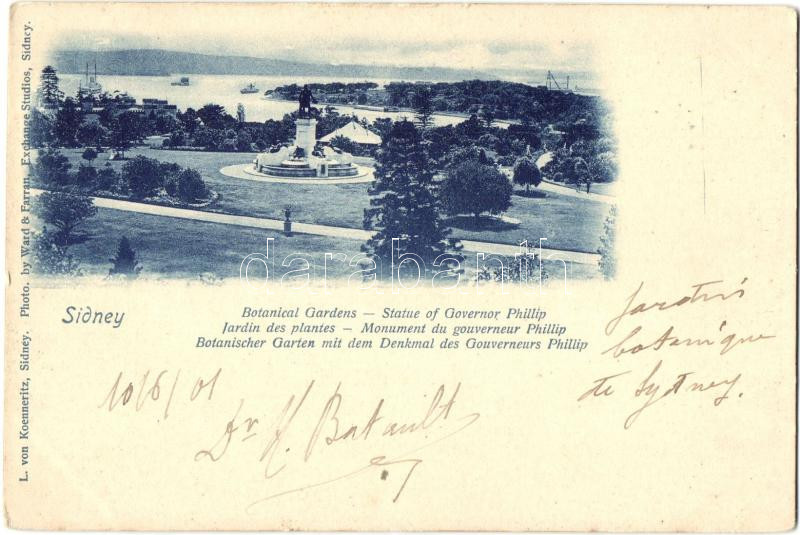 L. von Koenneritz, Sidney. Photo. by Ward & Farran, Exchange Studios, Sidney.
darabanth
Sidney
Botanical Gardens — Statue of Governor Phillip
Jardin des plantes — Monument du gouverneur Phillip
Botanischer Garten mit dem Denkmal des Gouverneurs Phillip
Jardin
botanique
de Sydney.
10/6/01
Dr H. Batault